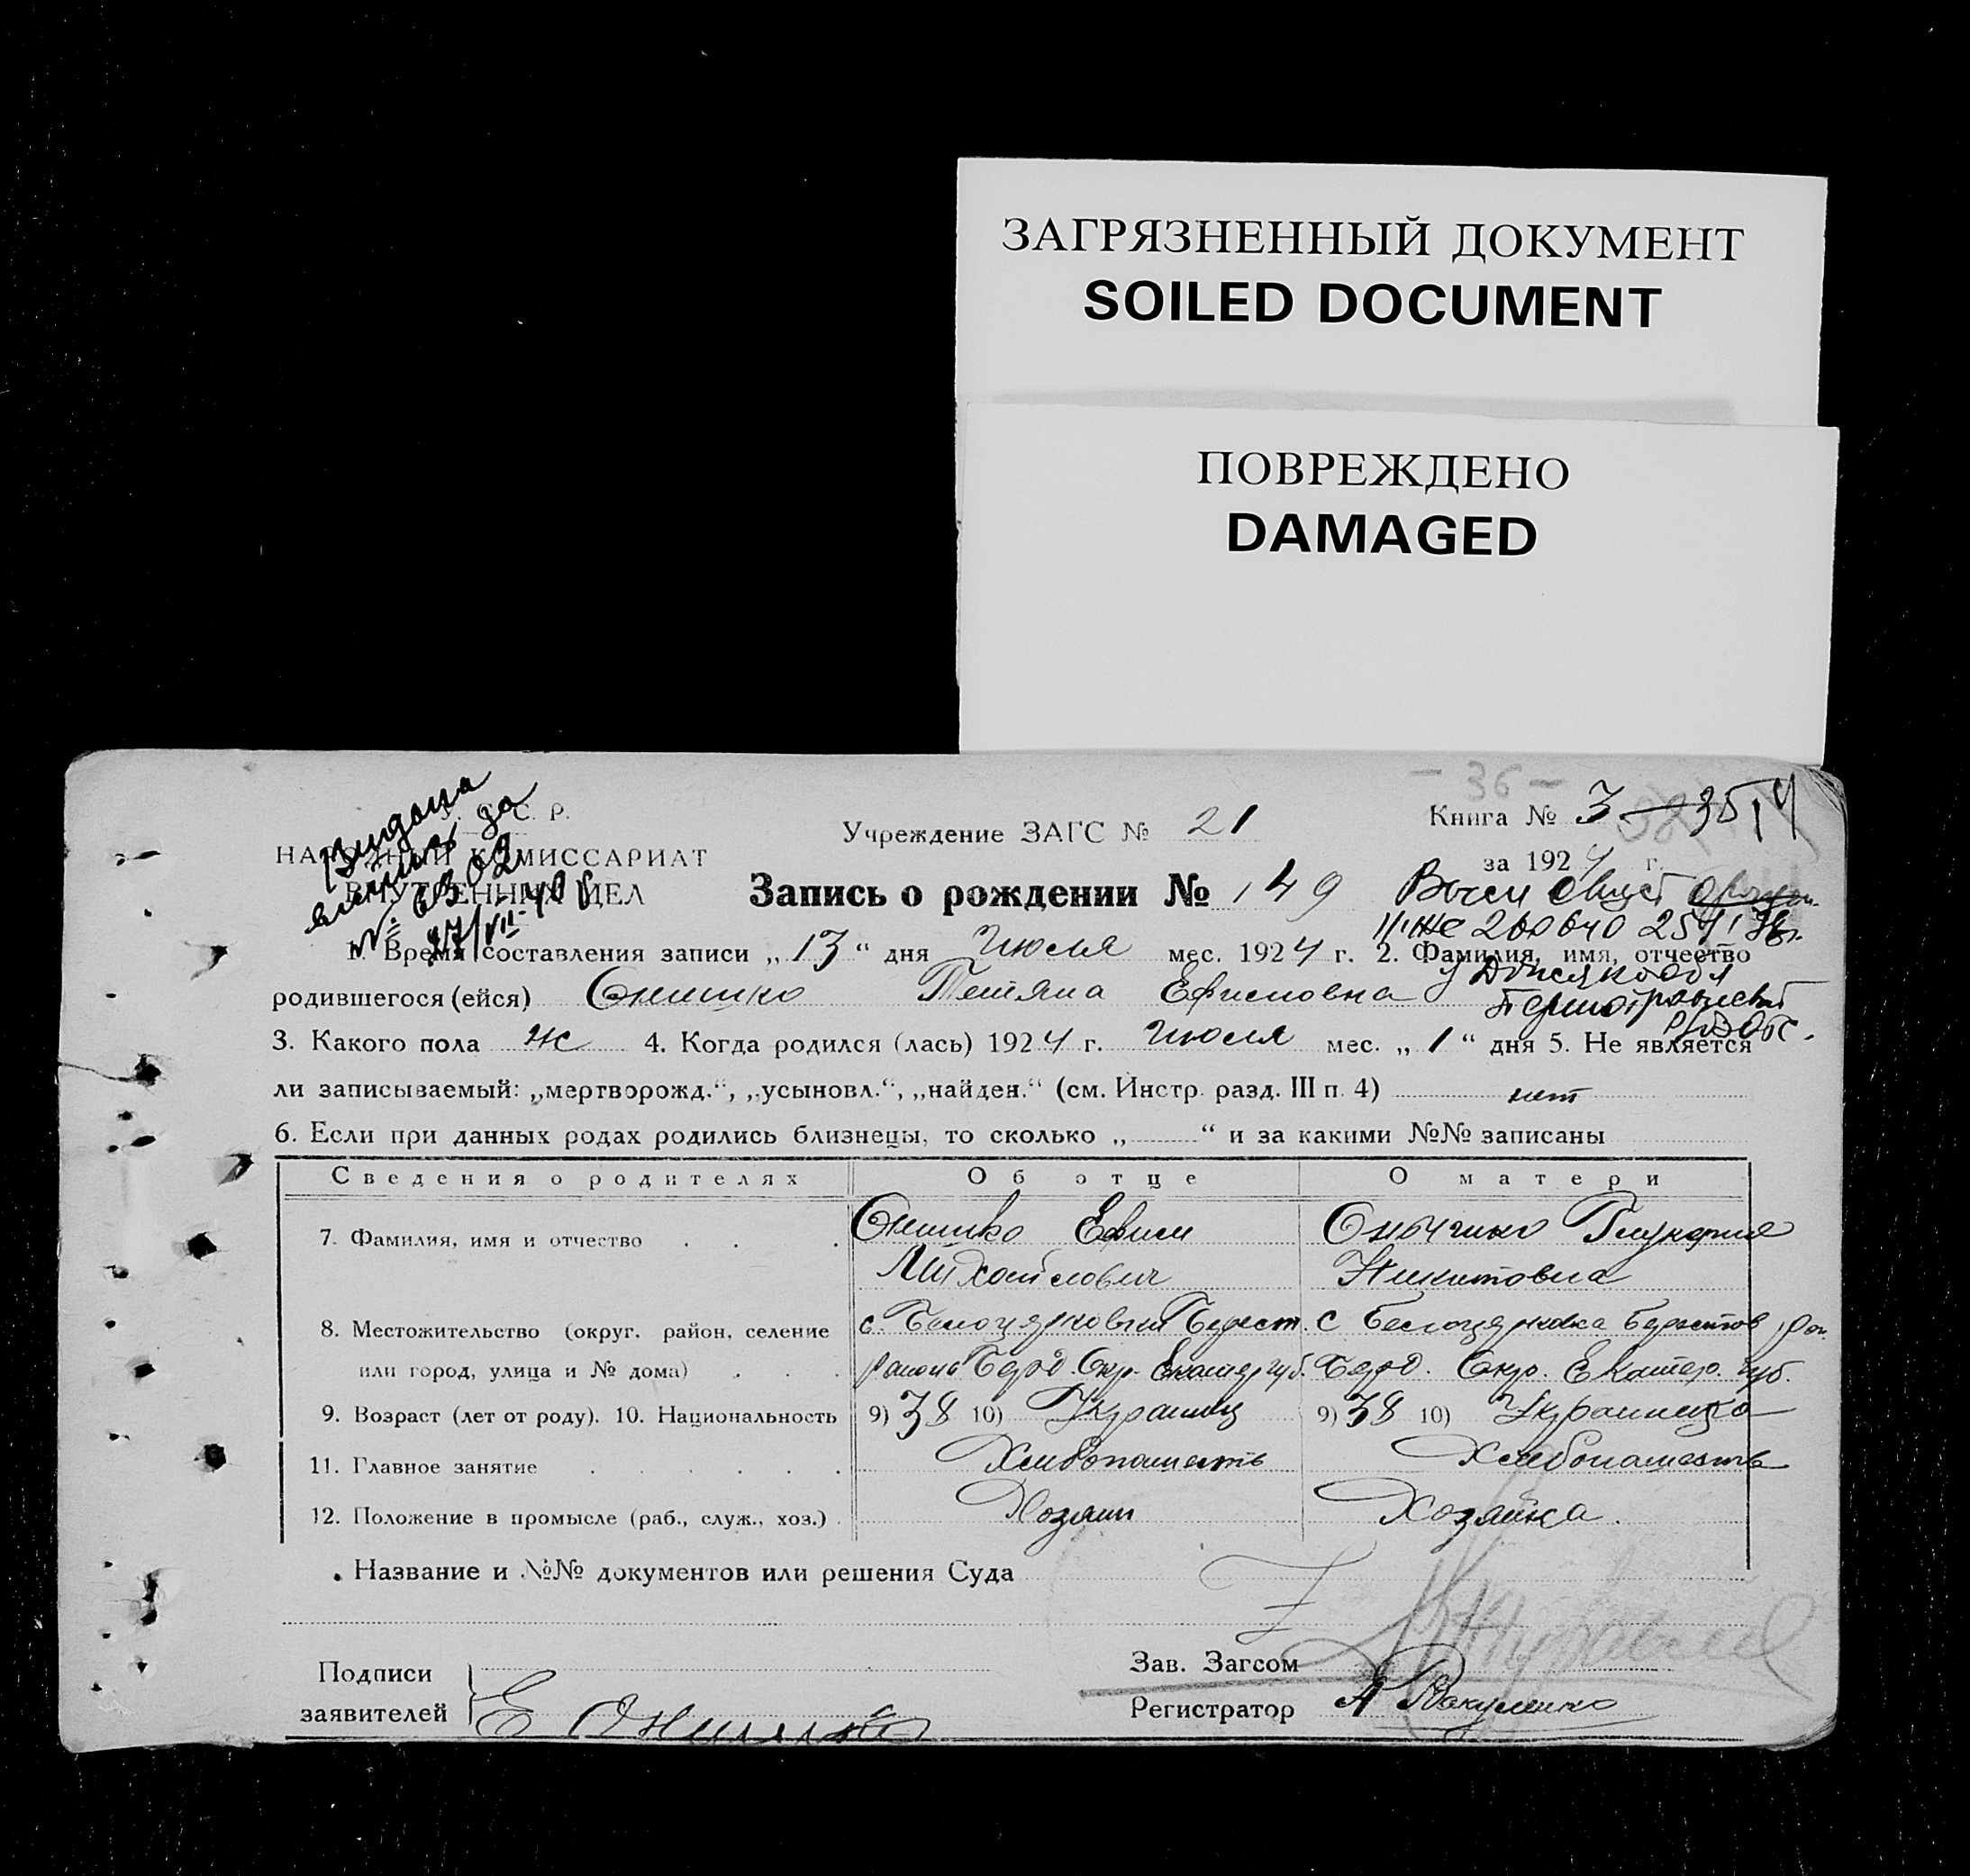 ЗАГРЯЗНЕННЫЙ ДОКУМЕНТ
SOILED DOCUMENT
ПОВРЕЖДЕНО
DAMAGED
- 36 -
С. Р.
Учреждение ЗАГС № 21
Книга № 3
НАРОДНЫЙ КОМИССАРИАТ
ВНУТРЕННИХ ДЕЛ
за 1924 г.
Запись о рождении № 149
№ 6302
1. Время составления записи „13“ дня Июля мес. 1924 г. 2. Фамилия, имя, отчество
родившегося (ейся) Онишко Тетяна Ефимовна
3. Какого пола ж 4. Когда родился (лась) 1924 г. Июля мес. „1“ дня 5. Не является
ли записываемый: „мертворожд.“, „усыновл.“, „найден.“ (см. Инстр. разд. III п. 4) нет
6. Если при данных родах родились близнецы, то сколько „ “ и за какими №№ записаны
Сведения о родителях Об отце О матери
7. Фамилия, имя и отчество Онишко Ефим Гликерия
Михайлович Никитовна
8. Местожительство (округ. район, селение с. Берест. с Белоцерковка Берестов рай.
или город, улица и № дома) района Берд. Окр. Екатер губ. Берд. Окр. Екатер. губ.
9. Возраст (лет от роду). 10. Национальность 9) 38 10) Украинец 9) 38 10) Украинка
11. Главное занятие Хлебопашеств Хлебопашеств
12. Положение в промысле (раб., служ., хоз.) Хозяин Хозяйка.
Название и №№ документов или решения Суда
Подписи
заявителей Е Онишко
Зав. Загсом
Регистратор А Вакуленко